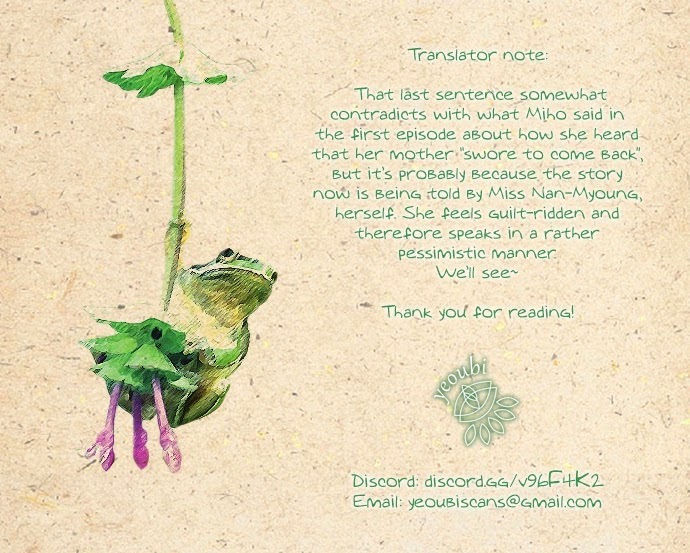 Translator note:
That last sentence somewhat
contradicts with what Miho said in
the first episode about how she heard
that her mother "swore to come back",
but it's probably because the story
now is being told by Miss Nan-Myoung,
herself. She feels guilt-ridden and
therefore speaks in a rather
pessimistic manner.
We'll see~
Thank you for reading!
yeoubi
Discord: discord.gg/v96F4K2
Email: yeoubiscans@gmail.com